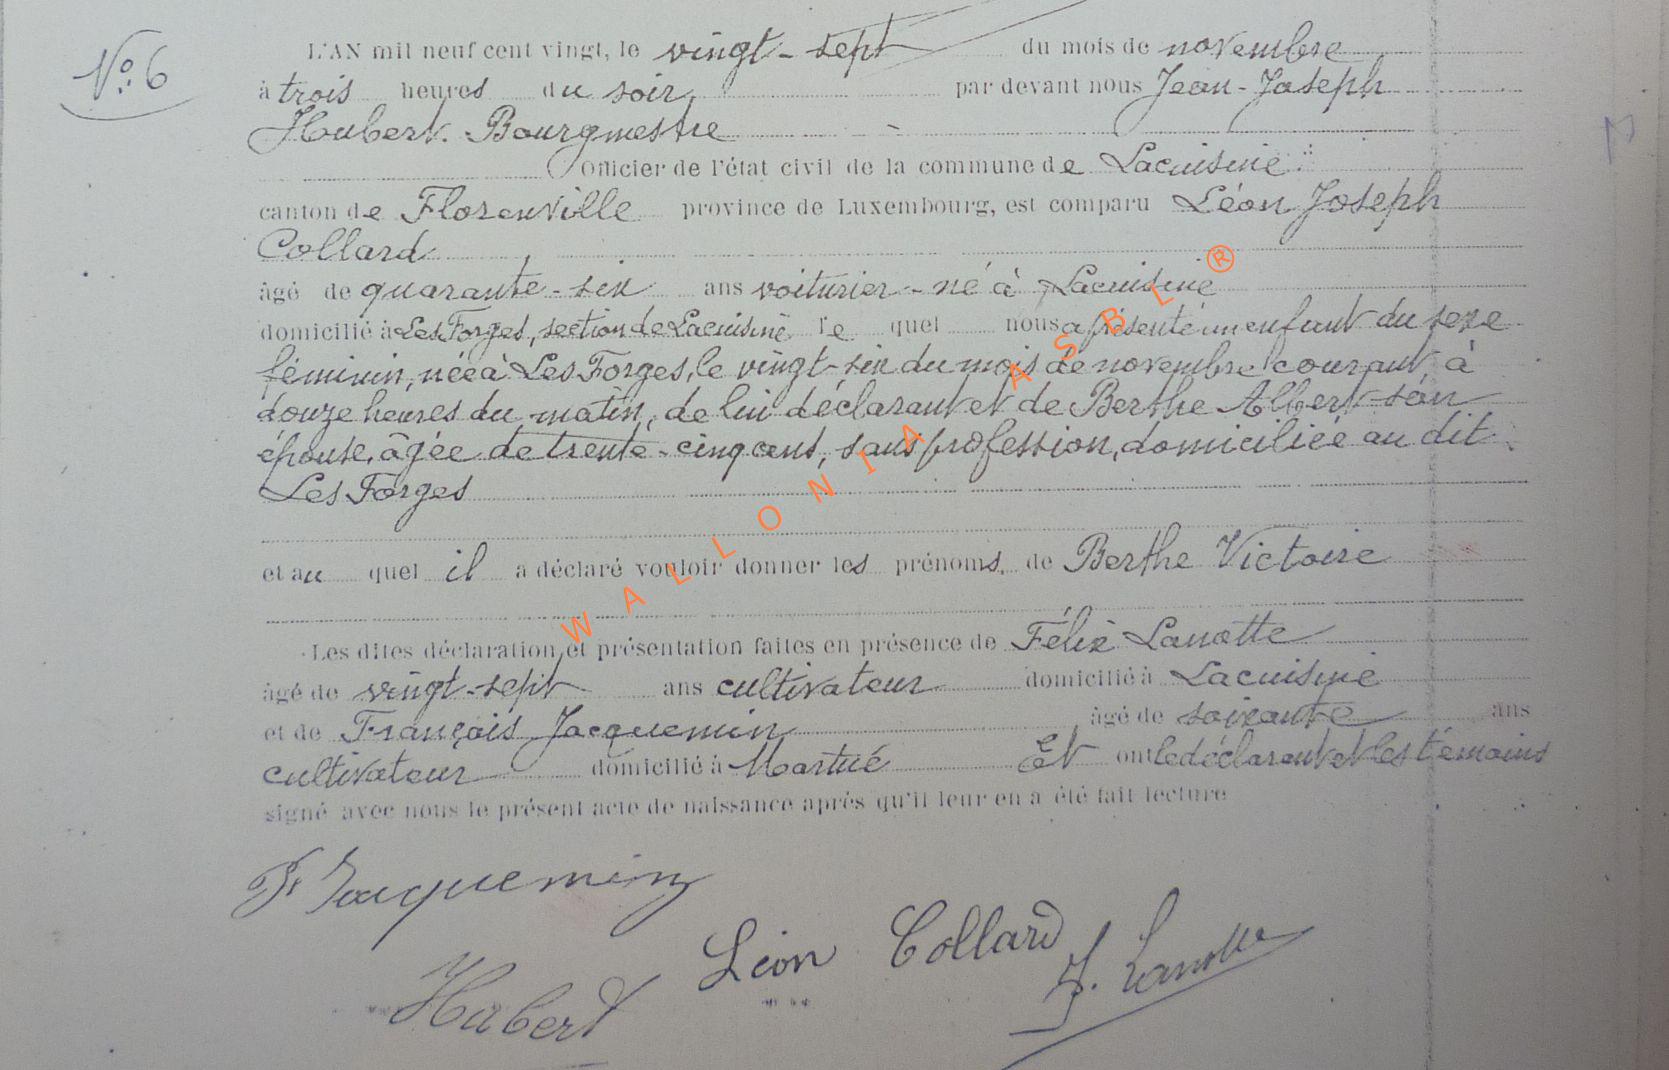 N° 6
L'AN mil neuf cent vingt, le vingt-sept du mois de novembre
à trois heures du soir, par devant nous Jean-Joseph
Houbert. Bourgmestre
Officier de l'état civil de la commune de Lacuisine
canton de Florenville province de Luxembourg, est comparu Léon Joseph
Collard
âgé de quarante-six ans voiturier - né à Lacuisine
domicilié à Les Forges, section de Lacuisine le quel nous a présenté un enfant du sexe
féminin, née à Les Forges, le vingt-six du mois de novembre courant, à
douze heures du matin, de lui déclarant et de Berthe Albert son
épouse, âgée de trente-cinq ans, sans profession, domiciliée au dit
Les Forges
et au quel il a déclaré vouloir donner les prénoms de Berthe Victoire
Les dites déclaration et présentation faites en présence de Félix Lanotte
âgé de vingt-sept ans cultivateur domicilié à Lacuisine
et de François Jacquemin âgé de soixante ans
cultivateur domicilié à Martué Et ont le déclarant et les témoins
signé avec nous le présent acte de naissance après qu'il leur en a été fait lecture
Jacquemin
Léon Collard
F. Lanotte
Hubert
WALLONIA ASBL ®